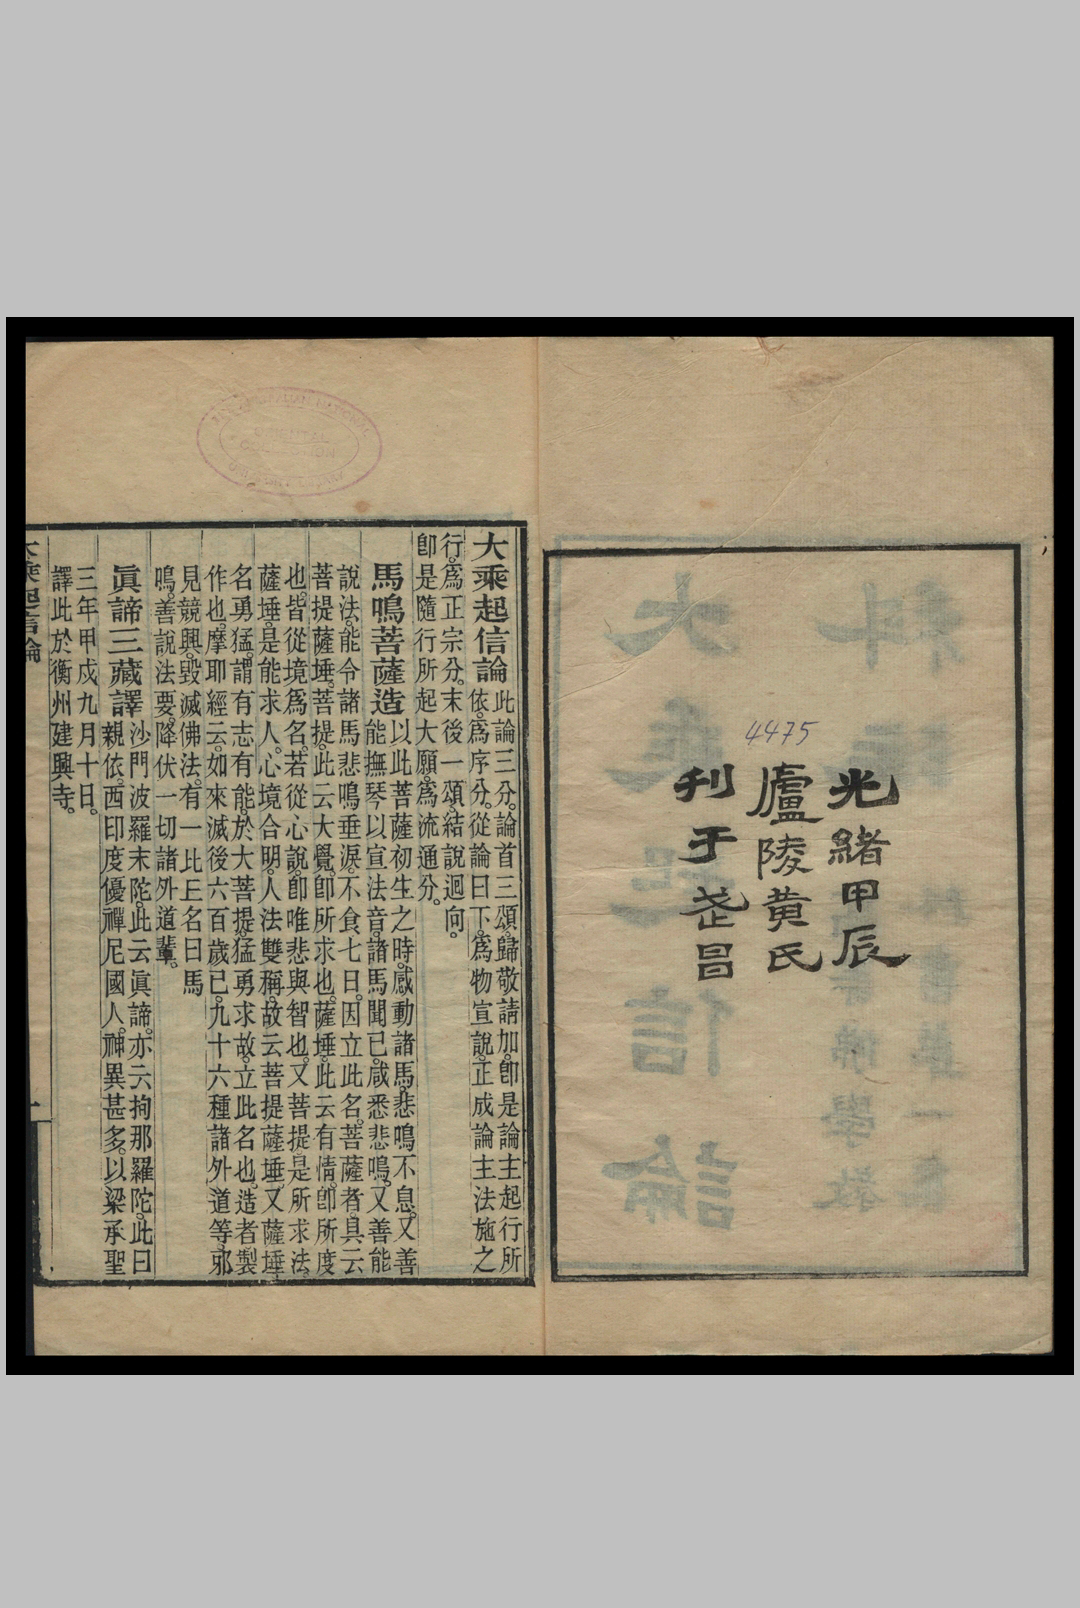 光緒甲辰
廬陵黃氏
刊于武昌
4475
大乘起信論
此論三分。論首三頌。歸敬請加。卽是論主起行所
依。爲序分。從論曰下。爲物宣說。正成論主法施之
行。爲正宗分。末後一頌。結說迴向。
卽是隨行所起大願。爲流通分。
馬鳴菩薩造
以此菩薩初生之時。感動諸馬。悲鳴不息。又善
能撫琴以宣法音。諸馬聞已。咸悉悲鳴。又善能
說法。能令諸馬悲鳴垂淚。不食七日。因立此名。菩薩者。具云
菩提薩埵。菩提。此云大覺。卽所求也。薩埵。此云有情。卽所度
也。皆從境爲名。若從心說。卽唯悲與智也。又菩提。是所求法。
薩埵。是能求人。心境合明。人法雙稱。故云菩提薩埵。又薩埵。
名勇猛。謂有志有能。於大菩提。猛勇求故。立此名也。造者製
作也。摩耶經云。如來滅後六百歲已。九十六種諸外道等。邪
見競興。毀滅佛法。有一比丘名曰馬
鳴。善說法要。降伏一切諸外道輩。
眞諦三藏譯
沙門波羅末陀。此云眞諦。亦云拘那羅陀。此曰
親依。西印度優禪尼國人。神異甚多。以梁承聖
三年甲戌九月十日。
譯此於衡州建興寺。
大乘起信論
一